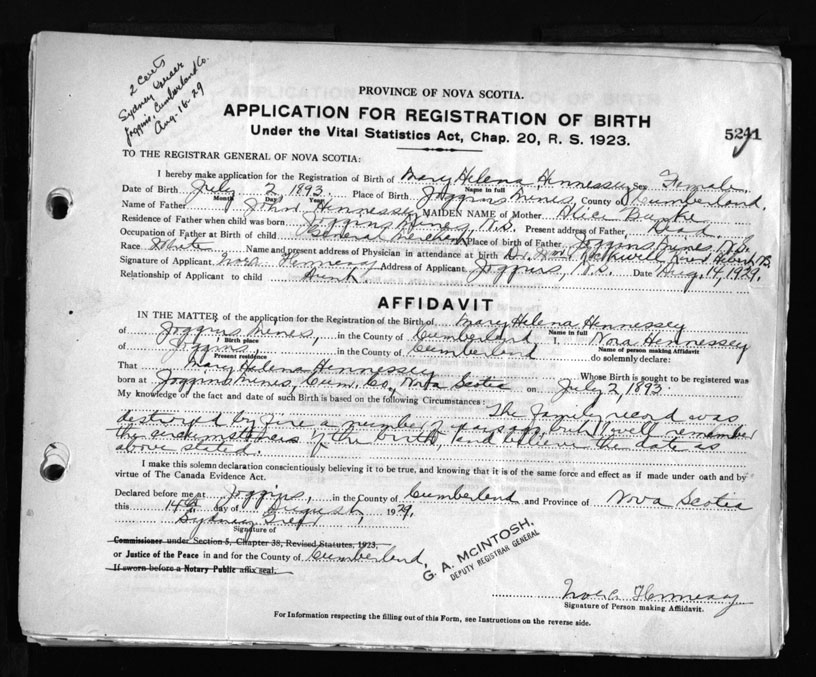 2 Certs
Sydney
Joggins, Cumberland Co.
Aug. 16-29
PROVINCE OF NOVA SCOTIA.
APPLICATION FOR REGISTRATION OF BIRTH
Under the Vital Statistics Act, Chap. 20, R. S. 1923.
TO THE REGISTRAR GENERAL OF NOVA SCOTIA:
I hereby make application for the Registration of Birth of Mary Helena Hennessey Sex Female
Name in full
Date of Birth July 2 1893. Place of Birth Joggins Mines, County of Cumberland.
Month Day Year
Name of Father John Hennessey MAIDEN NAME of Mother Alice Burke
Residence of Father when child was born Joggins Mines, N.S. Present address of Father, Dead.
Occupation of Father at Birth of child General Merchant Place of birth of Father Joggins Mines, N.S.
Race White Name and present address of Physician in attendance at birth Dr. Wm. Rockwell River Hebert N.S.
Signature of Applicant Nora Hennessy Address of Applicant Joggins, N.S. Date Aug. 14, 1929.
Relationship of Applicant to child Aunt.
AFFIDAVIT
IN THE MATTER of the application of the Registration of the Birth of Mary Helena Hennessey
Name in full
of Joggins Mines, in the County of Cumberland I, Nora Hennessey
Birth place Name of person making Affidavit
of Joggins, in the County of Cumberland do solemnly declare:
Present residence
That Mary Helena Hennessey Whose Birth is sought to be registered was
born at Joggins Mines, Cum. Co, Nova Scotia on July 2, 1893.
My knowledge of the fact and date of such Birth is based on the following Circumstances: The family record was
destroyed by fire a number of years ago, but I well remember
the circumstances of the birth, and believe the date as
above stated.
I make this solemn declaration conscientiously believing it to be true, and knowing that it is of the same force and effect as if made under oath and by
virtue of The Canada Evidence Act.
Declared before me at Joggins, in the County of Cumberland and Province of Nova Scotia
this 14th day of August, 1929.
Sydney
Signature of
Commissioner under Section 5, Chapter 38, Revised Statutes, 1923,
or Justice of the Peace in and for the County of Cumberland,
If sworn before a Notary Public affix seal.
G. A. McINTOSH,
DEPUTY REGISTRAR GENERAL
Nora Hennessy
Signature of Person making Affidavit.
For Information respecting the filling out of this Form, see Instructions on the reverse side.